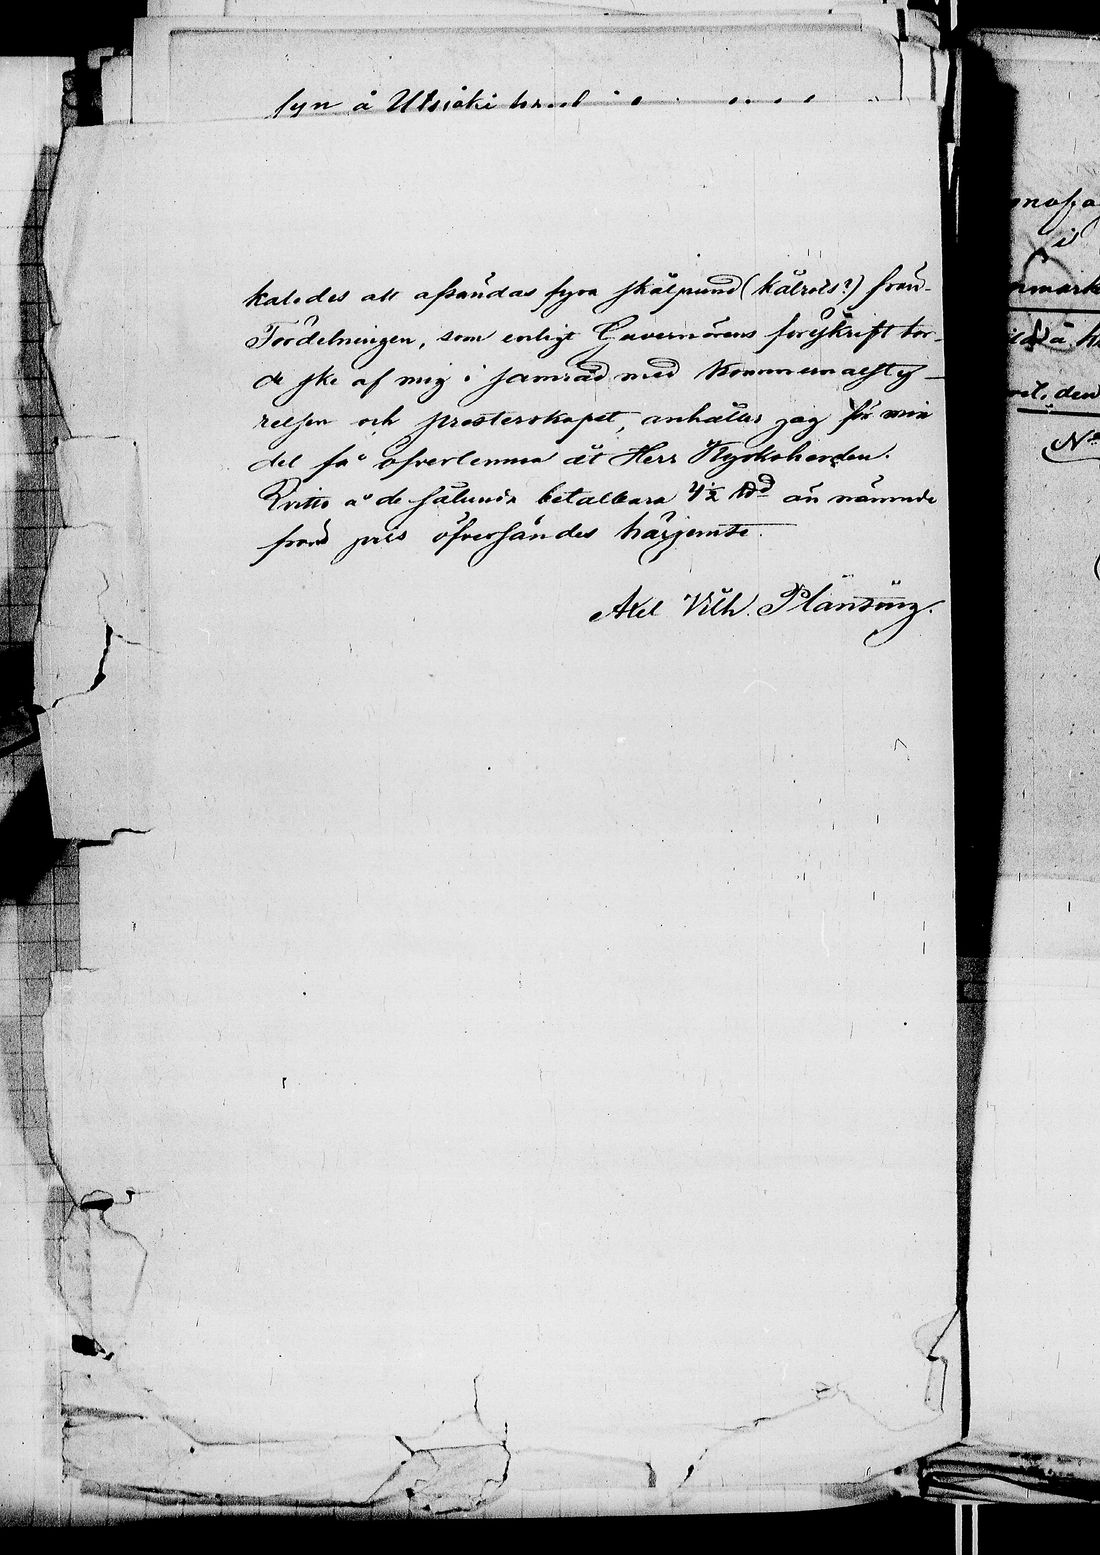 syn å Utsjoki
kalades att afsändas fyra skålpund (kålrots?) frön.
Fördelningen, som enligt Guvernörens föreskrift tor-
de ske af mig i samråd med Kommunalsty-
relsen och presterskapet, anhåller jag för min
del få öfverlemna åt Herr Kyrkoherden.
Kvitto å de sålunda betalbara 4½ ℔ af nämnde
frös pris öfversändes härjemte.
Axel Vilh. Planting.
i
den
No